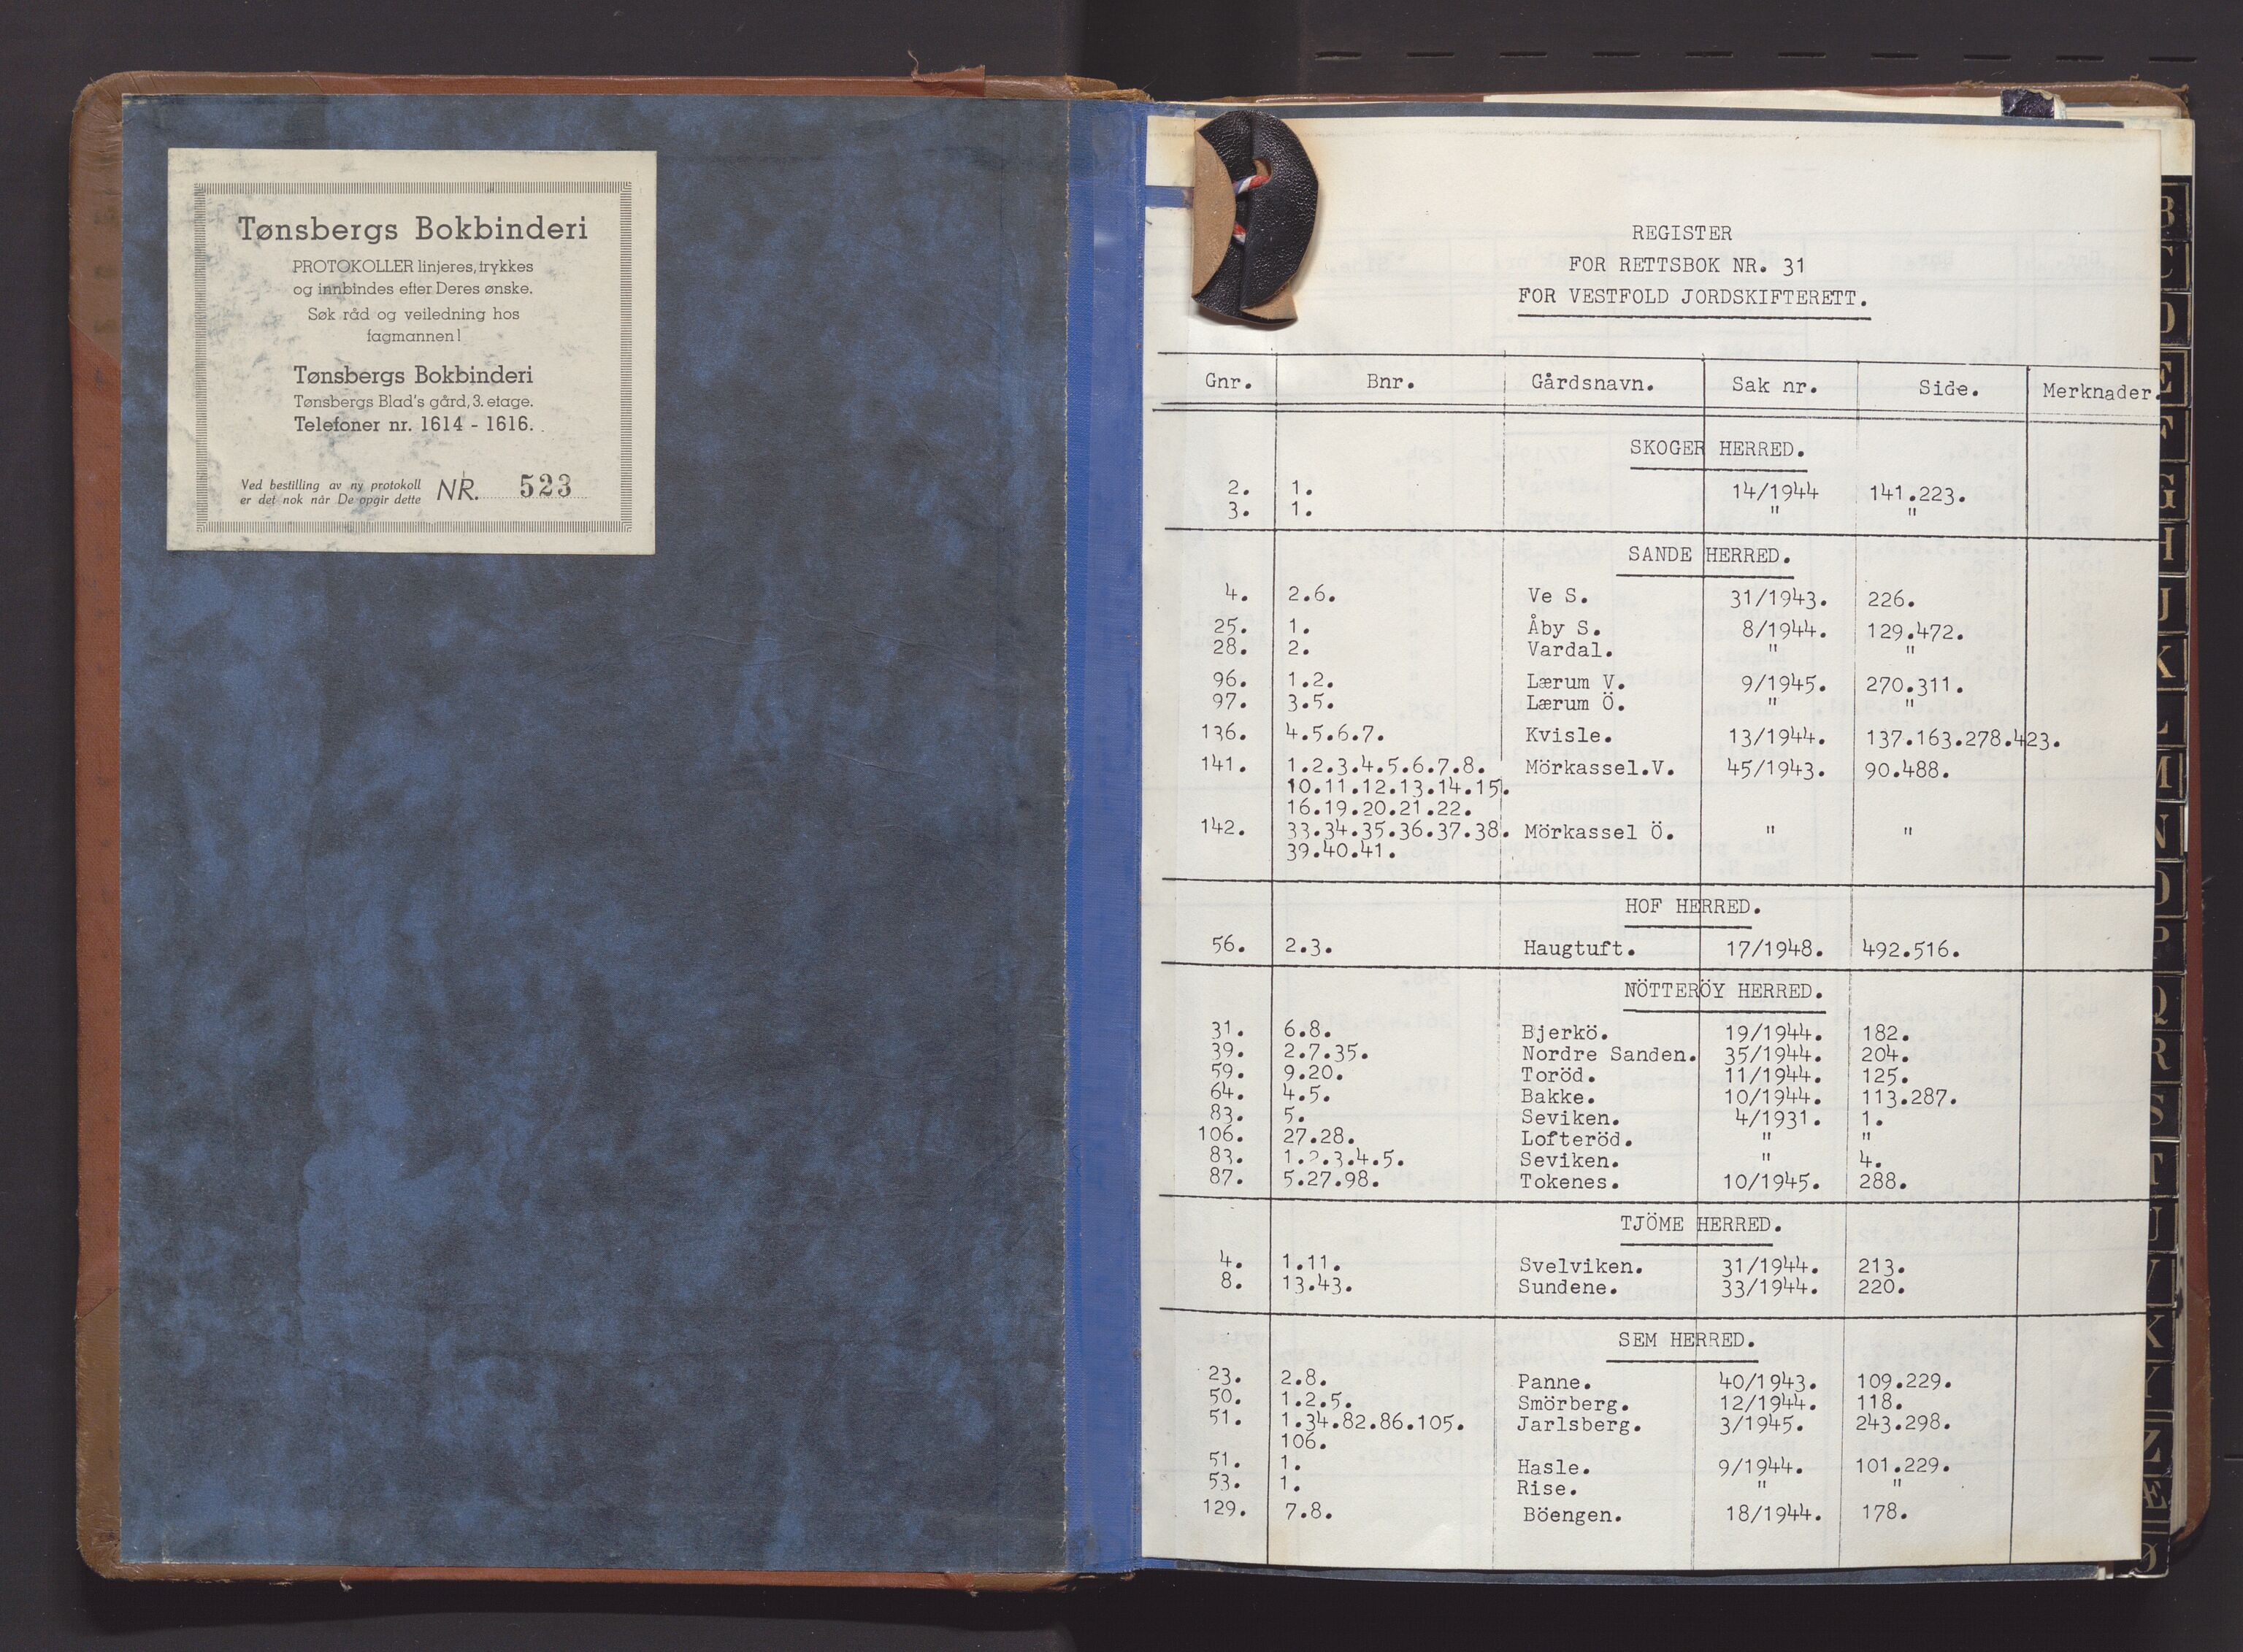 Tønsbergs Bokbinderi
PROTOKOLLER linjeres, trykkes
og innbindes efter Deres ønske.
Søk råd og veiledning hos
fagmannen!
Tønsbergs Bokbinderi
Tønsbergs Blad's gård, 3. etage.
Telefoner nr. 1614 - 1616.
Ved bestilling av ny protokoll
er det nok når De opgir dette NR. 523
REGISTER
FOR RETTSBOK NR. 31
FOR VESTFOLD JORDSKIFTERETT.
Gnr. Bnr. Gårdsnavn. Sak nr. Side. Merknader.
SKOGER HERRED.
2. 1. 14/1944 141.223.
3. 1. " "
SANDE HERRED.
4. 2.6. Ve S. 31/1943. 226.
25. 1. Åby S. 8/1944. 129.472.
28. 2. Vardal. " "
96. 1.2. Lærum V. 9/1945. 270.311.
97. 3.5. Lærum Ö. " "
136. 4.5.6.7. Kvisle. 13/1944. 137.163.278.423.
141. 1.2.3.4.5.6.7.8. Mörkassel.V. 45/1943. 90.488.
10.11.12.13.14.15.
16.19.20.21.22.
142. 33.34.35.36.37.38. Mörkassel Ö. " "
39.40.41.
HOF HERRED.
56. 2.3. Haugtuft. 17/1948. 492.516.
NÖTTERÖY HERRED.
31. 6.8. Bjerkö. 19/1944. 182.
39. 2.7.35. Nordre Sanden. 35/1944. 204.
59. 9.20. Toröd. 11/1944. 125.
64. 4.5. Bakke. 10/1944. 113.287.
83. 5. Seviken. 4/1931. 1.
106. 27.28. Lofteröd. " "
83. 1.2.3.4.5. Seviken. " 4.
87. 5.27.98. Tokenes. 10/1945. 288.
TJÖME HERRED.
4. 1.11. Svelviken. 31/1944. 213.
8. 13.43. Sundene. 33/1944. 220.
SEM HERRED.
23. 2.8. Panne. 40/1943. 109.229.
50. 1.2.5. Smörberg. 12/1944. 118.
51. 1.34.82.86.105. Jarlsberg. 3/1945. 243.298.
106.
51. 1. Hasle. 9/1944. 101.229.
53. 1. Rise. " "
129. 7.8. Böengen. 18/1944. 178.
B
C
D
E
F
G
H
J
K
L
M
N
O
P
Q
R
S
T
U
V
X
Y
Z
Æ
Ø